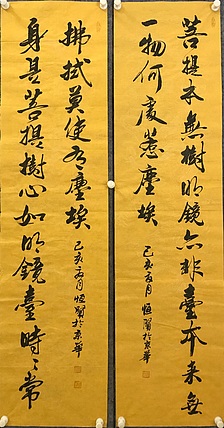 菩提本無樹明鏡亦非臺本來無
一物何處惹塵埃
己亥 月 於京華
身是菩提樹心如明鏡臺時〻常
拂拭莫使有塵埃
己亥 月 於京華